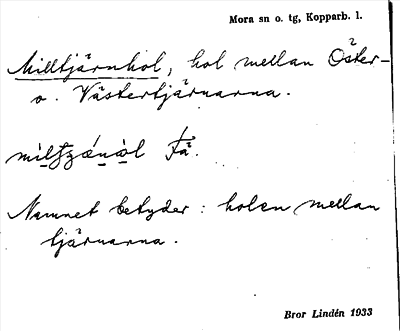 Mora sn o. tg, Kopparb. l.
Milltjärnhol, hol mellan Öster-
o. Västertjärnarna.
Namnet betyder: holen mellan
tjärnarna.
Bror Lindén 1933